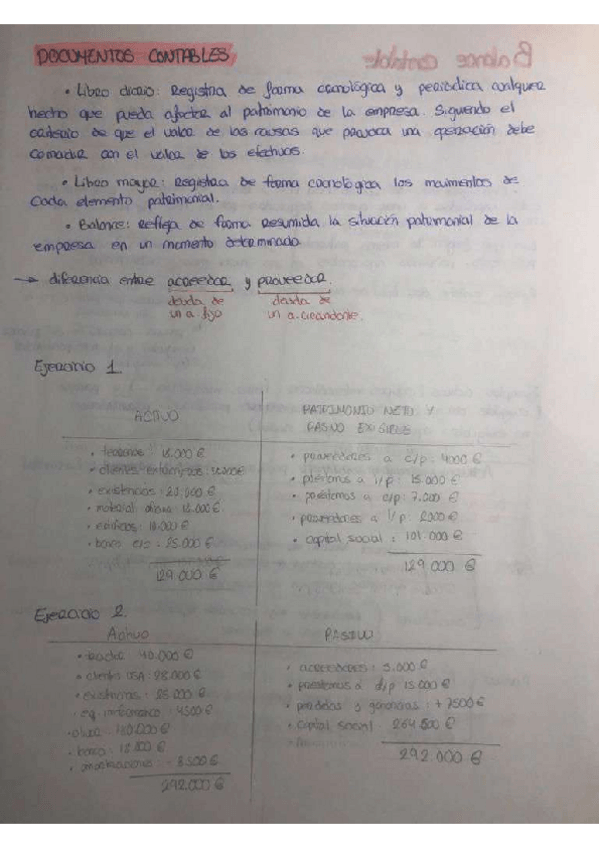 DOCUMENTOS CONTABLES
Balance contable
• Libro diario: Registra de forma cronológica y periódica cualquier
hecho que pueda afectar al patrimonio de la empresa. Siguiendo el
criterio de que el valor de las causas que provoca una operación debe
coincidir con el valor de los efectivos.
• Libro mayor: Registra de forma cronológica los movimientos de
cada elemento patrimonial.
• Balance: Refleja de forma resumida la situación patrimonial de la
empresa en un momento determinado
→ diferencia entre acreedor y proveedor.
deuda de
un a. fijo
deuda de
un a. circundante.
Ejercicio 1.
ACTIVO
• terrenos: 18.000 €
• existencias:
• material oficina
• edificios:
• banco c/c = 25.000 €
129.000 €
PATRIMONIO NETO Y
PASIVO EXIGIBLE
• proveedores a c/p: 4000 €
• préstamos a l/p: 15.000 €
• préstamos a c/p: 7.000 €
• proveedores a l/p: 2000 €
• capital social: 101.000 €
129.000 €
Ejercicio 2.
Activo
40.000 €
• clientes USA: 28.000 €
• existencias: 25.000 €
eq. informático: 4500 €
• banco:
3.500 €
292.000 €
PASIVO
• acreedores: 5.000 €
• préstamos a l/p 15.000 €
• pérdidas y ganancias: + 7500 €
• Capital social: 264.500 €
292.000 €